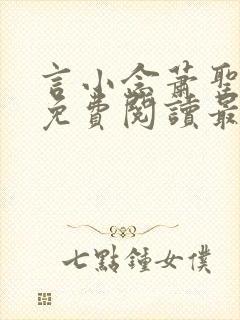 言小念蕭聖
免費閱讀最
七點鐘女僕